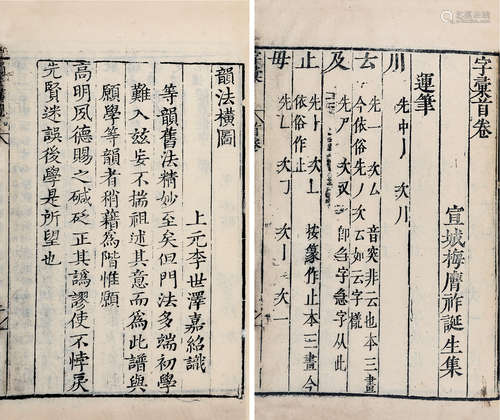 字彙首卷
宣城梅膺祚誕生集
運筆
川 先中丿 次川
先一 次厶 音突非云也本三畫
今依俗先 次云如云字
及 先 次 即 字急字从此
止 先⺊ 次丄 按篆作止本三畫今
依俗作止
毋 先 次 次 次一
韻法橫圖
上元李世澤嘉紹識
等韻舊法精妙至矣但門法多端初學
難入茲妄不揣祖述其意而為此譜與
願學等韻者稍藉為階惟願
高明夙德賜之碱砭正其譌謬使不悖戾
先賢迷誤後學是所望也